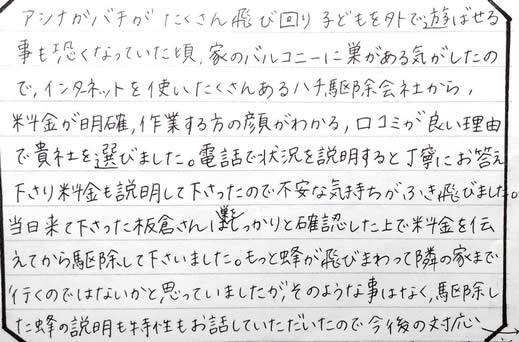 アシナガバチがたくさん飛び回り子どもを外で遊ばせる
事も恐くなっていた頃、家のバルコニーに巣がある気がしたの
で、インターネットを使いたくさんあるハチ駆除会社から、
料金が明確、作業する方の顔がわかる、口コミが良い理由
で貴社を選びました。電話で状況を説明すると丁寧にお答え
下さり料金も説明して下さったので不安な気持ちがふき飛びました。
当日来て下さった板倉さんは巣をしっかりと確認した上で料金を伝
えてから駆除して下さいました。もっと蜂が飛びまわって隣の家まで
行くのではないかと思っていましたが、そのような事はなく、駆除し
た蜂の説明も特性もお話していただいたので今後の対応、